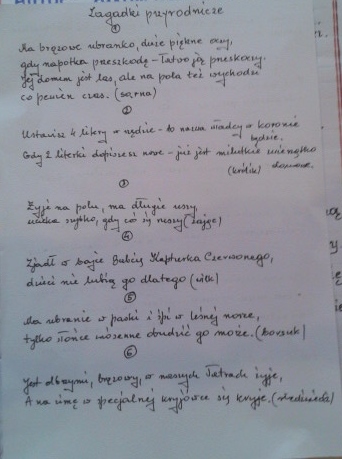 Zagadki przyrodnicze
①
Ma brązowe ubranko, duże piękne oczy,
gdy napotka przeszkodę - łatwo ją przeskoczy.
Jej domem jest las, ale na pola też wychodzi
co pewien czas. (sarna)
②
Ustawisz 4 litery w rzędzie - to nazwa władcy w koronie
będzie.
Gdy 2 literki dopiszesz nowe - już jest milutkie zwierzątko
(królik) domowe.
③
Żyje na polu, ma długie uszy,
umyka szybko, gdy coś się ruszy (zając)
④
Zjadł w bajce Babcię Kapturka Czerwonego,
dzieci nie lubią go dlatego (wilk)
⑤
Ma ubranie w paski i śpi w leśnej norce,
tylko słońce wiosenne obudzić go może. (borsuk)
⑥
Jest olbrzymi, brązowy, w naszych Tatrach żyje,
A na zimę w specjalnej kryjówce się kryje.